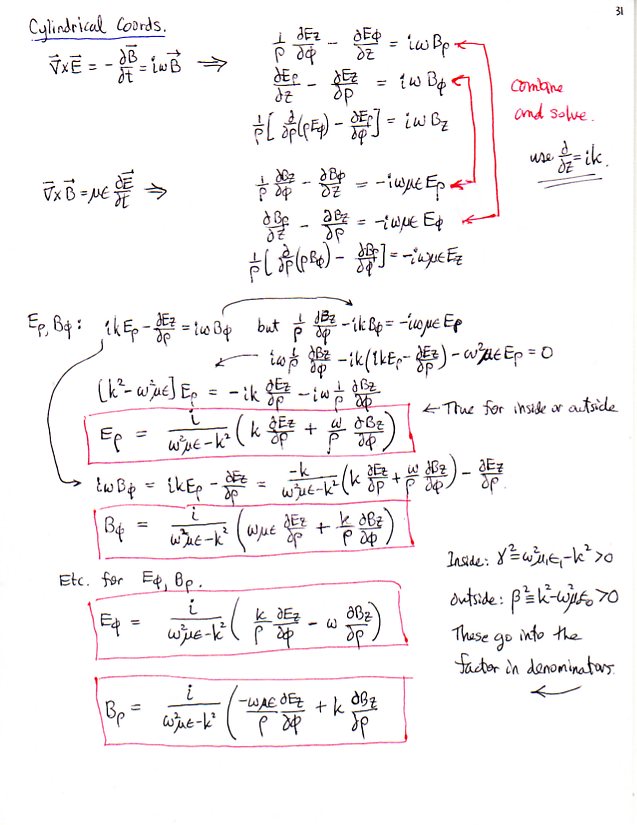 31
Cylindrical Coords.
∇⃗×E⃗ = -∂B⃗/∂t = iωB⃗ ⇒
1/ρ ∂Ez/∂φ - ∂Eφ/∂z = iωBρ
∂Eρ/∂z - ∂Ez/∂ρ = iωBφ
1/ρ[∂/∂ρ(ρEφ) - ∂Eρ/∂φ] = iωBz
combine
and solve.
use ∂/∂z = ik.
∇⃗×B⃗ = με ∂E⃗/∂t ⇒
1/ρ ∂Bz/∂φ - ∂Bφ/∂z = -iωμεEρ
∂Bρ/∂z - ∂Bz/∂ρ = -iωμεEφ
1/ρ[∂/∂ρ(ρBφ) - ∂Bρ/∂φ] = -iωμεEz
Eρ, Bφ: ikEρ - ∂Ez/∂ρ = iωBφ but 1/ρ ∂Bz/∂φ - ikBφ = -iωμεEρ
iω 1/ρ ∂Bz/∂φ - ik(ikEρ - ∂Ez/∂ρ) - ω²μεEρ = 0
[k²-ω²με]Eρ = -ik ∂Ez/∂ρ - iω 1/ρ ∂Bz/∂φ
Eρ = i/(ω²με-k²) (k ∂Ez/∂ρ + ω/ρ ∂Bz/∂φ) ← True for inside or outside
iωBφ = ikEρ - ∂Ez/∂ρ = -k/(ω²με-k²) (k ∂Ez/∂ρ + ω/ρ ∂Bz/∂φ) - ∂Ez/∂ρ.
Bφ = i/(ω²με-k²) (ωμε ∂Ez/∂ρ + k/ρ ∂Bz/∂φ)
Etc. for Eφ, Bρ.
Eφ = i/(ω²με-k²) (k/ρ ∂Ez/∂φ - ω ∂Bz/∂ρ)
Bρ = i/(ω²με-k²) (-ωμε/ρ ∂Ez/∂φ + k ∂Bz/∂ρ)
Inside: γ² ≡ ω²μ₁ε₁-k² > 0
outside: β² ≡ k²-ω²μ₀ε₀ > 0
These go into the
factor in denominators.